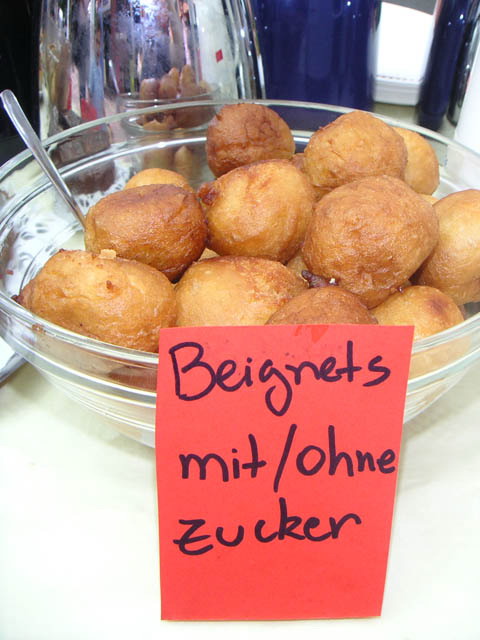 Beignets
mit/ohne
zucker